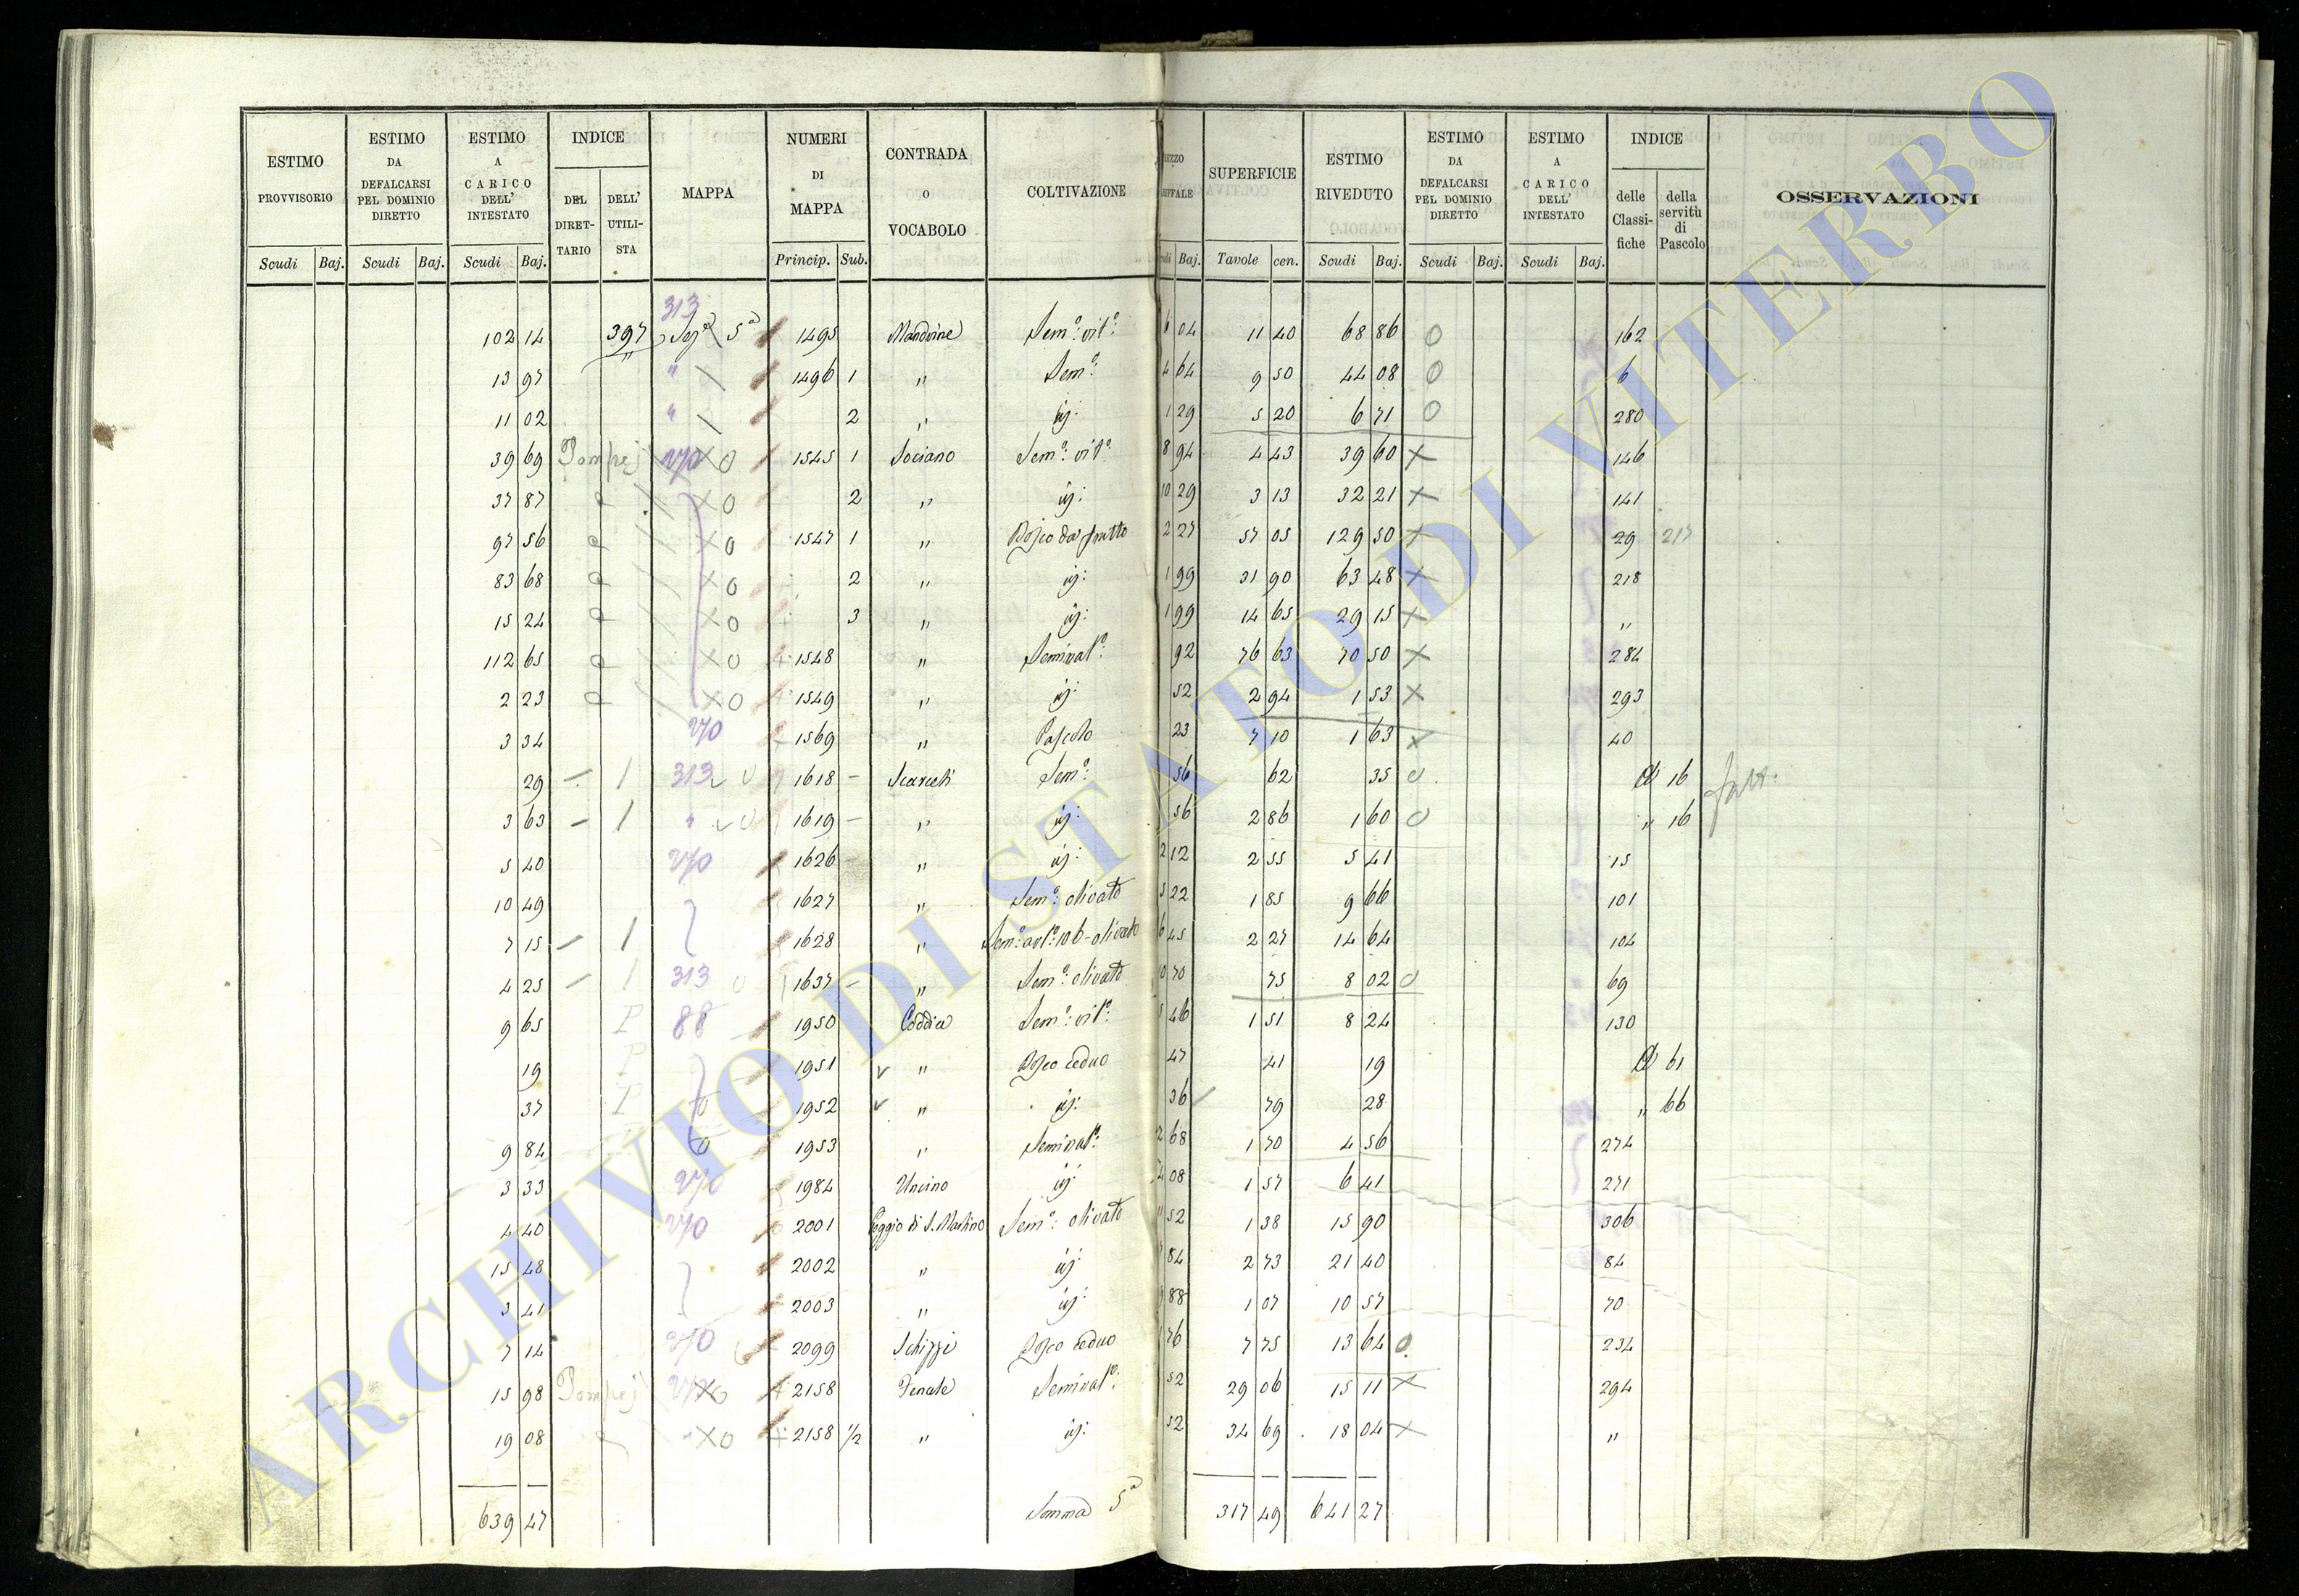 ESTIMO PROVVISORIO | ESTIMO DA DEFALCARSI PEL DOMINIO DIRETTO | ESTIMO A CARICO DELL' INTESTATO | INDICE DEL DIRETTARIO | DELL' UTILISTA | MAPPA | NUMERI DI MAPPA | CONTRADA o VOCABOLO | COLTIVAZIONE | SUPERFICIE | ESTIMO RIVEDUTO | ESTIMO DA DEFALCARSI PEL DOMINIO DIRETTO | ESTIMO A CARICO DELL' INTESTATO | INDICE delle Classifiche | della servitù di Pascolo | OSSERVAZIONI
Scudi | Baj. | Scudi | Baj. | Scudi | Baj. | Princip. | Sub. | Baj. | Tavole | cen. | Scudi | Baj. | Scudi | Baj. | Scudi | Baj.
313
102 14 | 397 | Seg.e 5a | 1495 | Sem.o vit.o | 6 04 | 11 40 | 68 86 | 0 | 162
13 97 | " | 1496 | 1 | " | Sem.o | 4 64 | 9 50 | 44 08 | 0 | 6
11 02 | " | 2 | " | id: | 1 29 | 5 20 | 6 71 | 0 | 280
39 69 | Pompej | 270 X 0 | 1545 | 1 | Sociano | Sem.o vit.o | 8 94 | 4 43 | 39 60 | X | 146
37 87 | X 0 | 2 | " | id: | 10 29 | 3 13 | 32 21 | X | 141
97 56 | X 0 | 1547 | 1 | " | Bosco da frutto | 2 27 | 57 05 | 129 50 | X | 29 | 217
83 68 | X 0 | 2 | " | id: | 1 99 | 31 90 | 63 48 | X | 218
15 24 | X 0 | 3 | " | id: | 1 99 | 14 65 | 29 15 | X | "
112 65 | X 0 | 1548 | " | Seminat.o | 92 | 76 63 | 70 50 | X | 284
2 23 | X 0 | 1549 | " | id: | 52 | 2 94 | 1 53 | X | 293
3 34 | 270 | 1569 | " | Pascolo | 23 | 7 10 | 1 63 | X | 40
29 | 313 | 1618 | Scarceti | Sem.o | 56 | 62 | 35 | 0 | 16
3 63 | " | 1619 | " | id: | 56 | 2 86 | 1 60 | 0 | " 16
5 40 | 270 | 1626 | " | id: | 2 12 | 2 55 | 5 41 | 15
10 49 | 1627 | " | Sem.o olivato | 5 22 | 1 85 | 9 66 | 101
7 15 | 1628 | " | olivato | 6 45 | 2 27 | 14 64 | 104
4 25 | 313 | 1637 | " | Sem.o olivato | 0 70 | 75 | 8 02 | 0 | 69
9 65 | P | 88 | 1950 | Coddia | Sem.o vit.o | 5 46 | 1 51 | 8 24 | 130
19 | P | 1951 | " | Bosco ceduo | 47 | 41 | 19 | 61
37 | P | 1952 | " | id: | 36 | 79 | 28 | " 66
9 84 | 1953 | " | Seminat.o | 2 68 | 1 70 | 4 56 | 274
3 33 | 270 | 1984 | Uncino | id: | 4 08 | 1 57 | 6 41 | 271
4 40 | 270 | 2001 | Poggio di S. Martino | Sem.o olivato | 11 52 | 1 38 | 15 90 | 306
15 48 | 2002 | " | id: | 84 | 2 73 | 21 40 | 84
3 41 | 2003 | " | id: | 88 | 1 07 | 10 57 | 70
7 14 | 270 | 2099 | Schizzi | Bosco ceduo | 1 76 | 7 75 | 13 64 | 0 | 234
15 98 | Pompej | X 0 | 2158 | Penate | Seminat.o | 52 | 29 06 | 15 11 | X | 294
19 08 | " X 0 | 2158 | 1/2 | " | id: | 52 | 34 69 | 18 04 | X | "
639 47 | Somma 5a | 317 49 | 641 27
ARCHIVIO DI STATO DI VITERBO